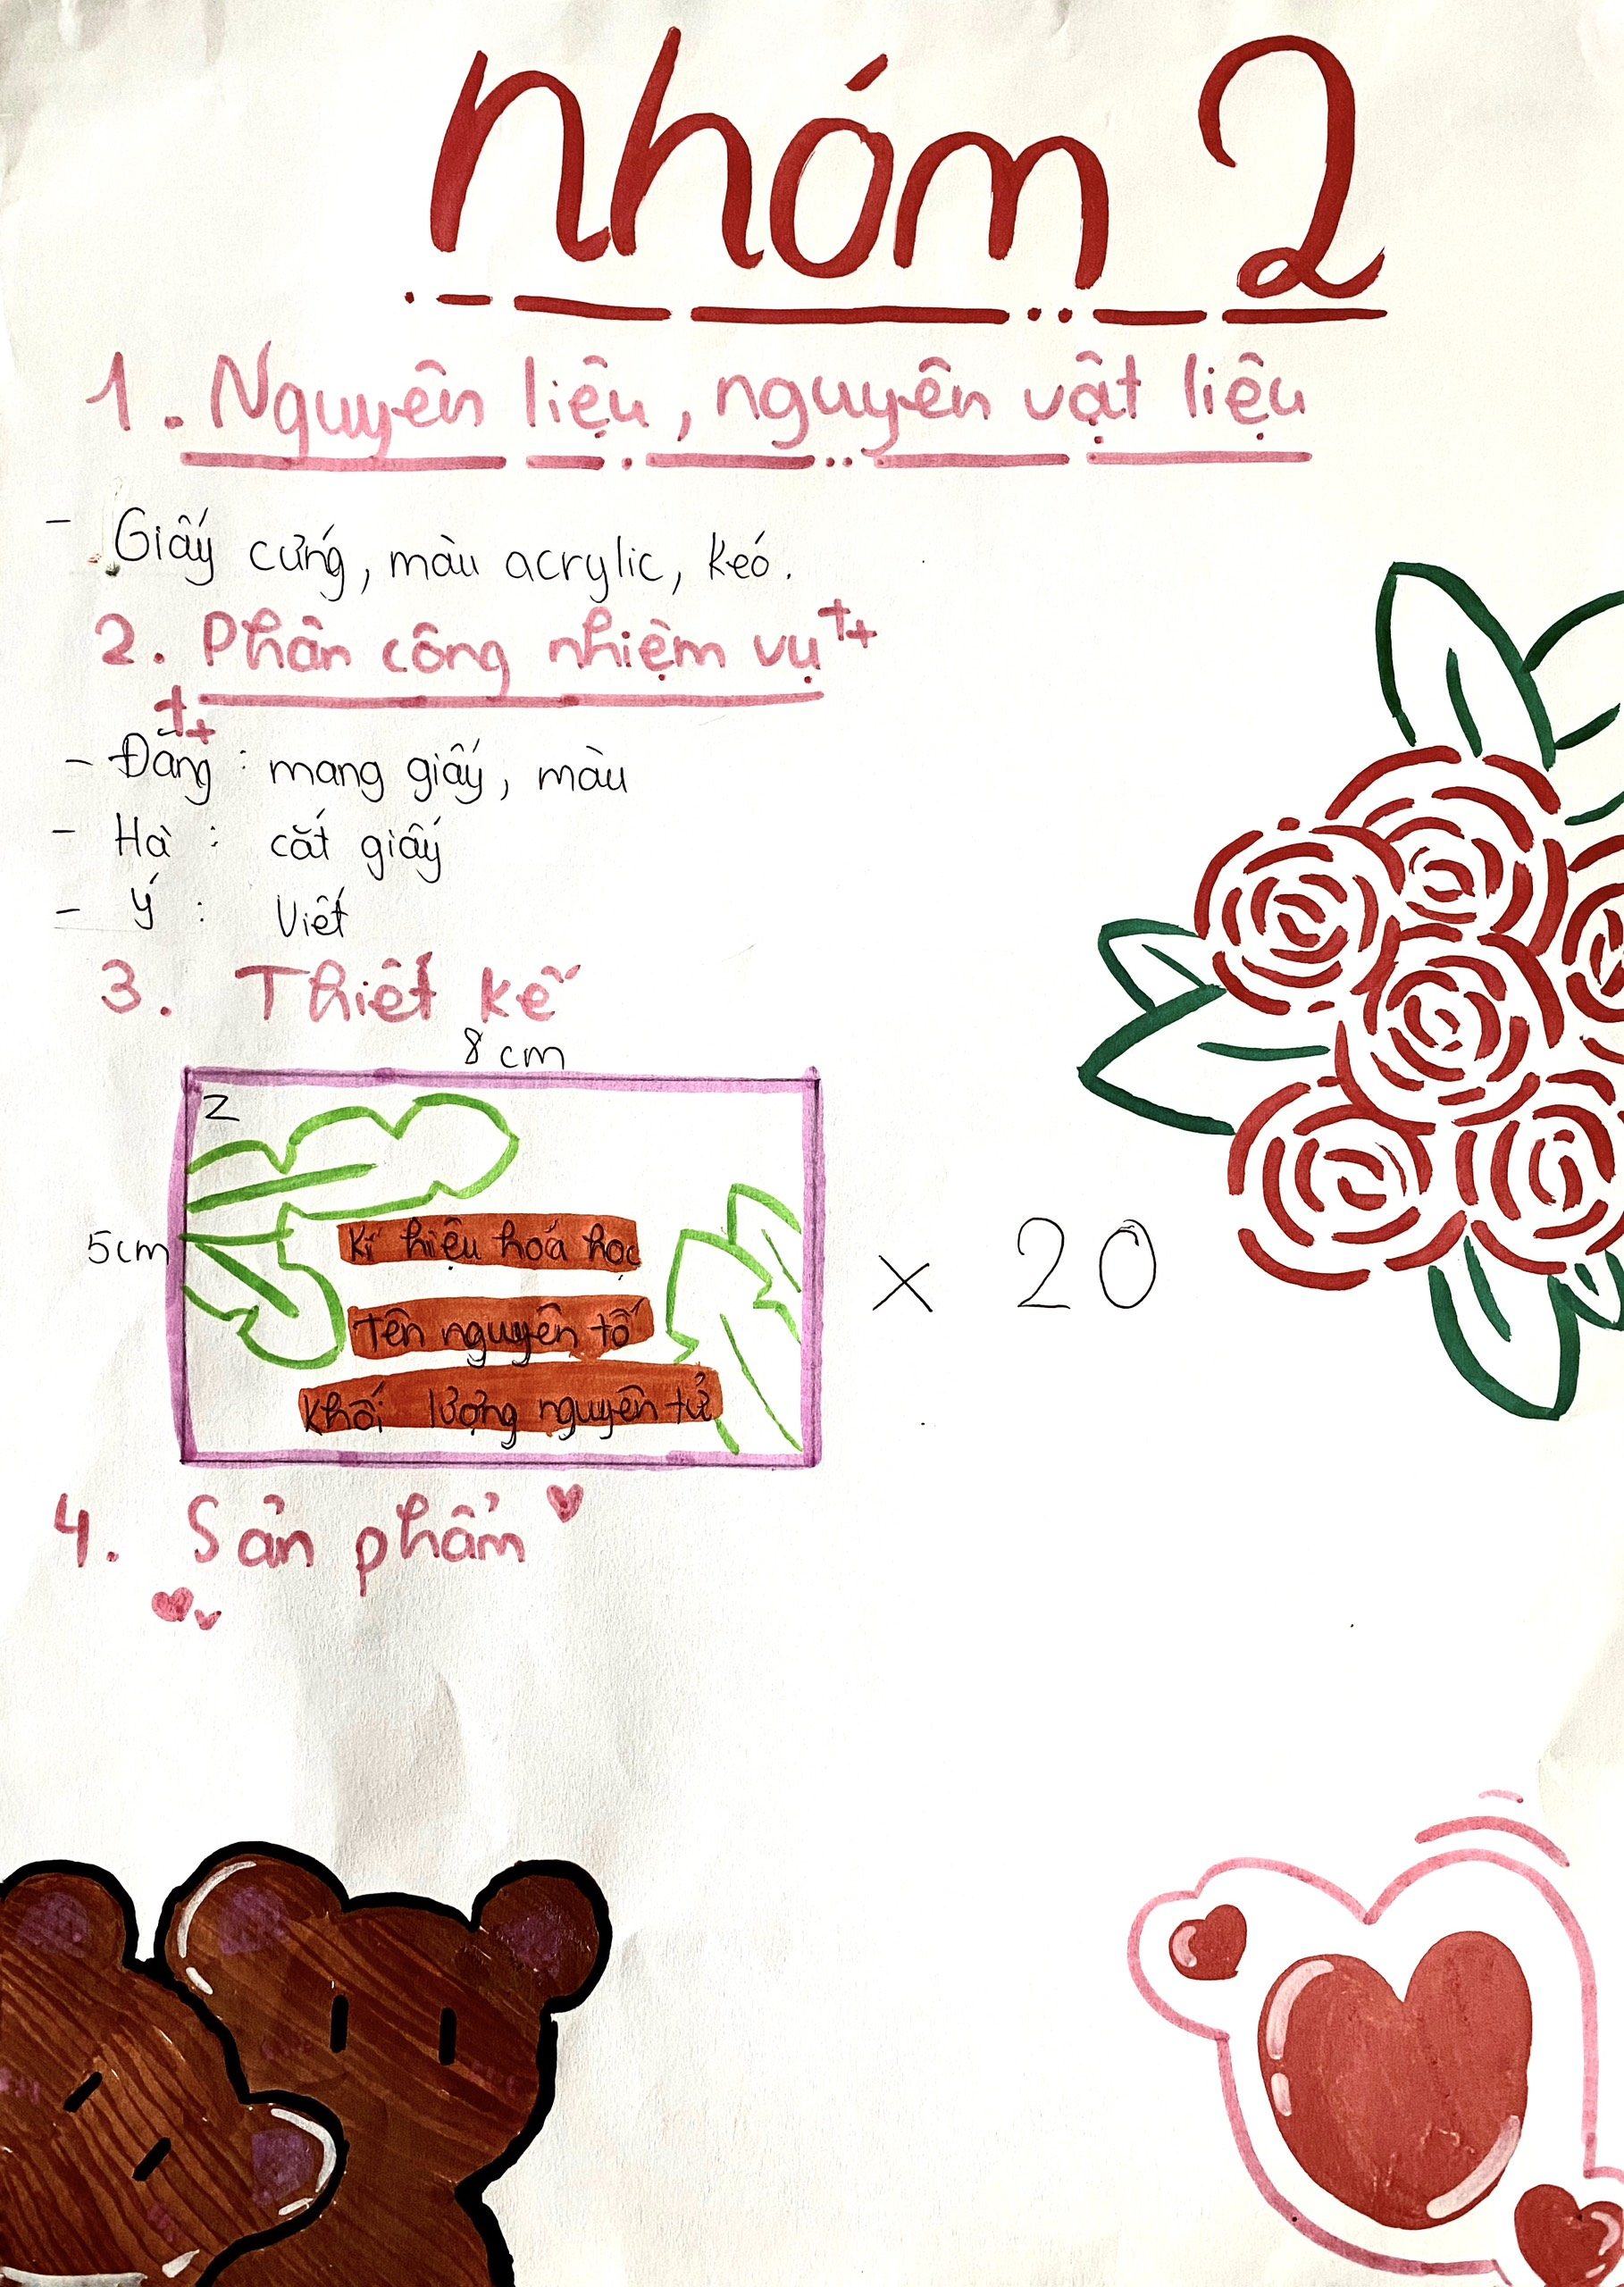 Nhóm 2
1. Nguyên liệu, nguyên vật liệu
- Giấy cứng, màu acrylic, kéo.
2. Phân công nhiệm vụ
- Đăng : mang giấy, màu
- Hà : cắt giấy
- Ý : Viết
3. Thiết kế
8 cm
Z
5cm
Kí hiệu hoá học
Tên nguyên tố
x 20
Khối lượng nguyên tử
4. Sản phẩm